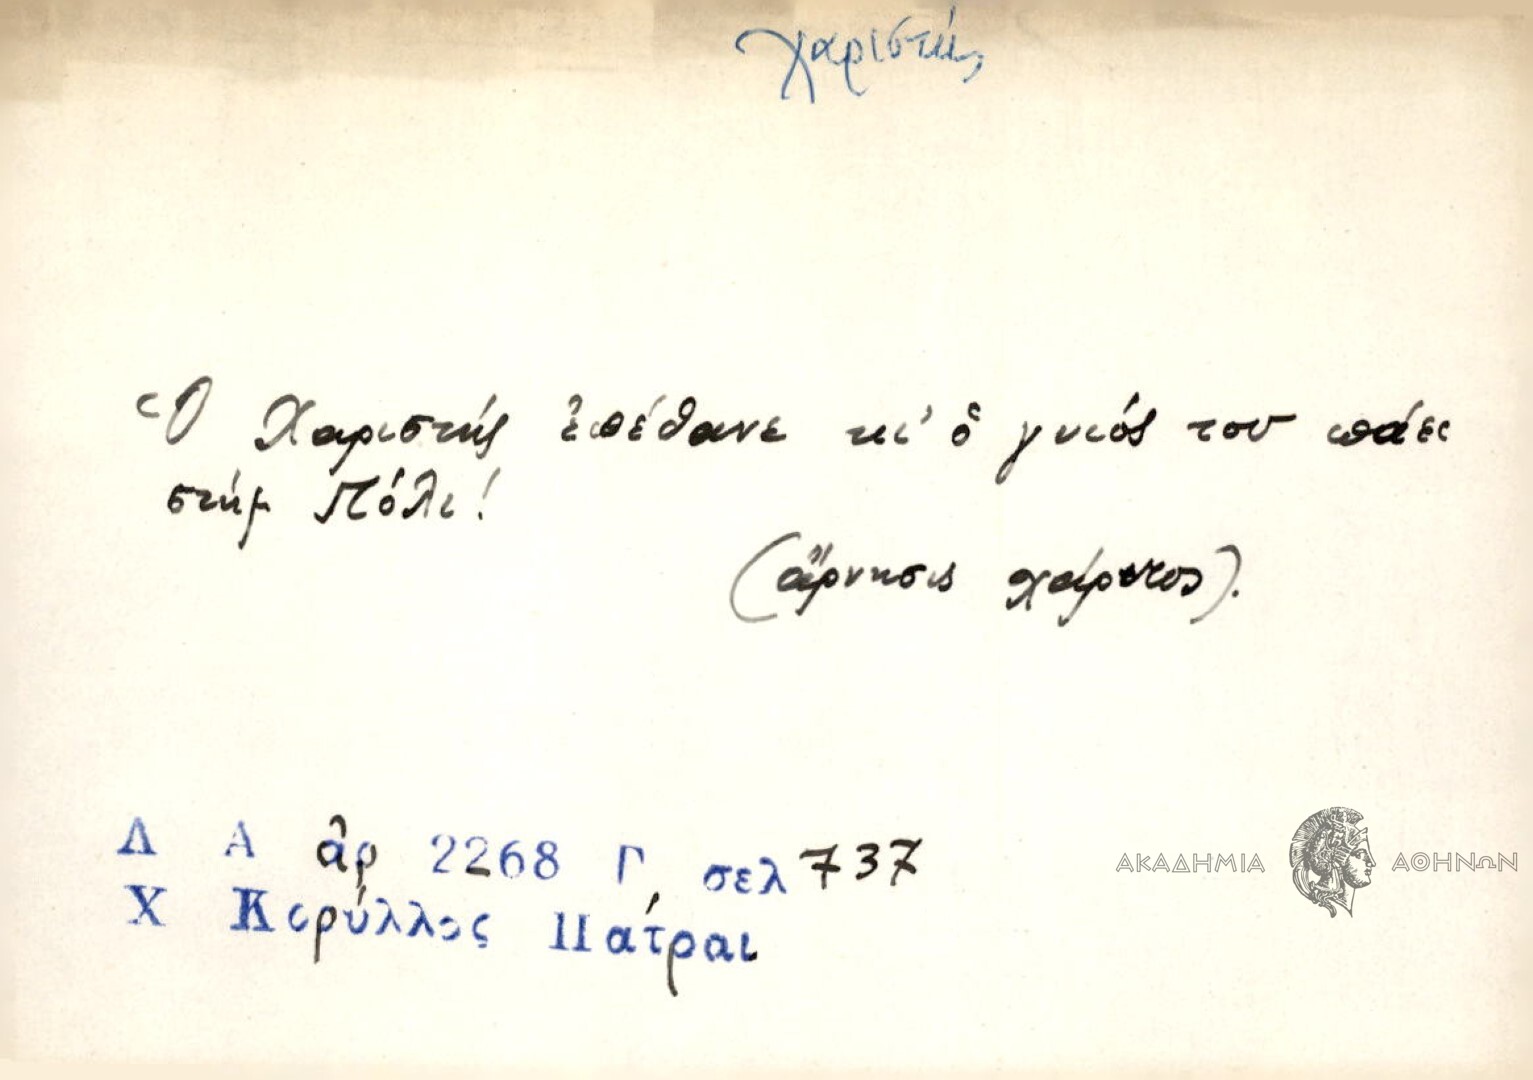 χαριστής
Ὁ Χαριστής ἐπέθανε κι' ὁ γυιός του πάει
στήμ Πόλι!
(ἄρνησις χάριτος).
Λ Α ἀρ 2268 Γ, σελ 737
Χ Κορύλλος Πάτραι
ΑΚΑΔΗΜΙΑ ΑΘΗΝΩΝ